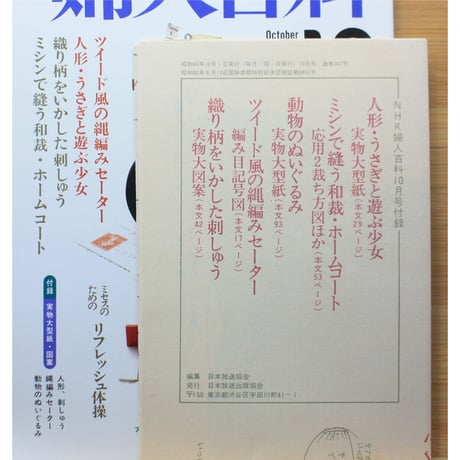 婦人百科
October
ツイード風の縄編みセーター
人形・うさぎと遊ぶ少女
織り柄をいかした刺しゅう
ミシンで縫う和裁・ホームコート
ミセスの
ための
リフレッシュ体操
付録
実物大型紙・図案
人形、刺しゅう
縄編みセーター
動物のぬいぐるみ
NHK婦人百科10月号付録
人形・うさぎと遊ぶ少女
実物大型紙(本文29ページ)
ミシンで縫う和裁・ホームコート
応用2裁ち方図ほか(本文53ページ)
動物のぬいぐるみ
実物大型紙(本文93ページ)
ツイード風の縄編みセーター
編み目記号図(本文17ページ)
織り柄をいかした刺しゅう
実物大図案(本文42ページ)
編集 日本放送協会
発行 日本放送出版協会
〒150 東京都渋谷区宇田川町41-1